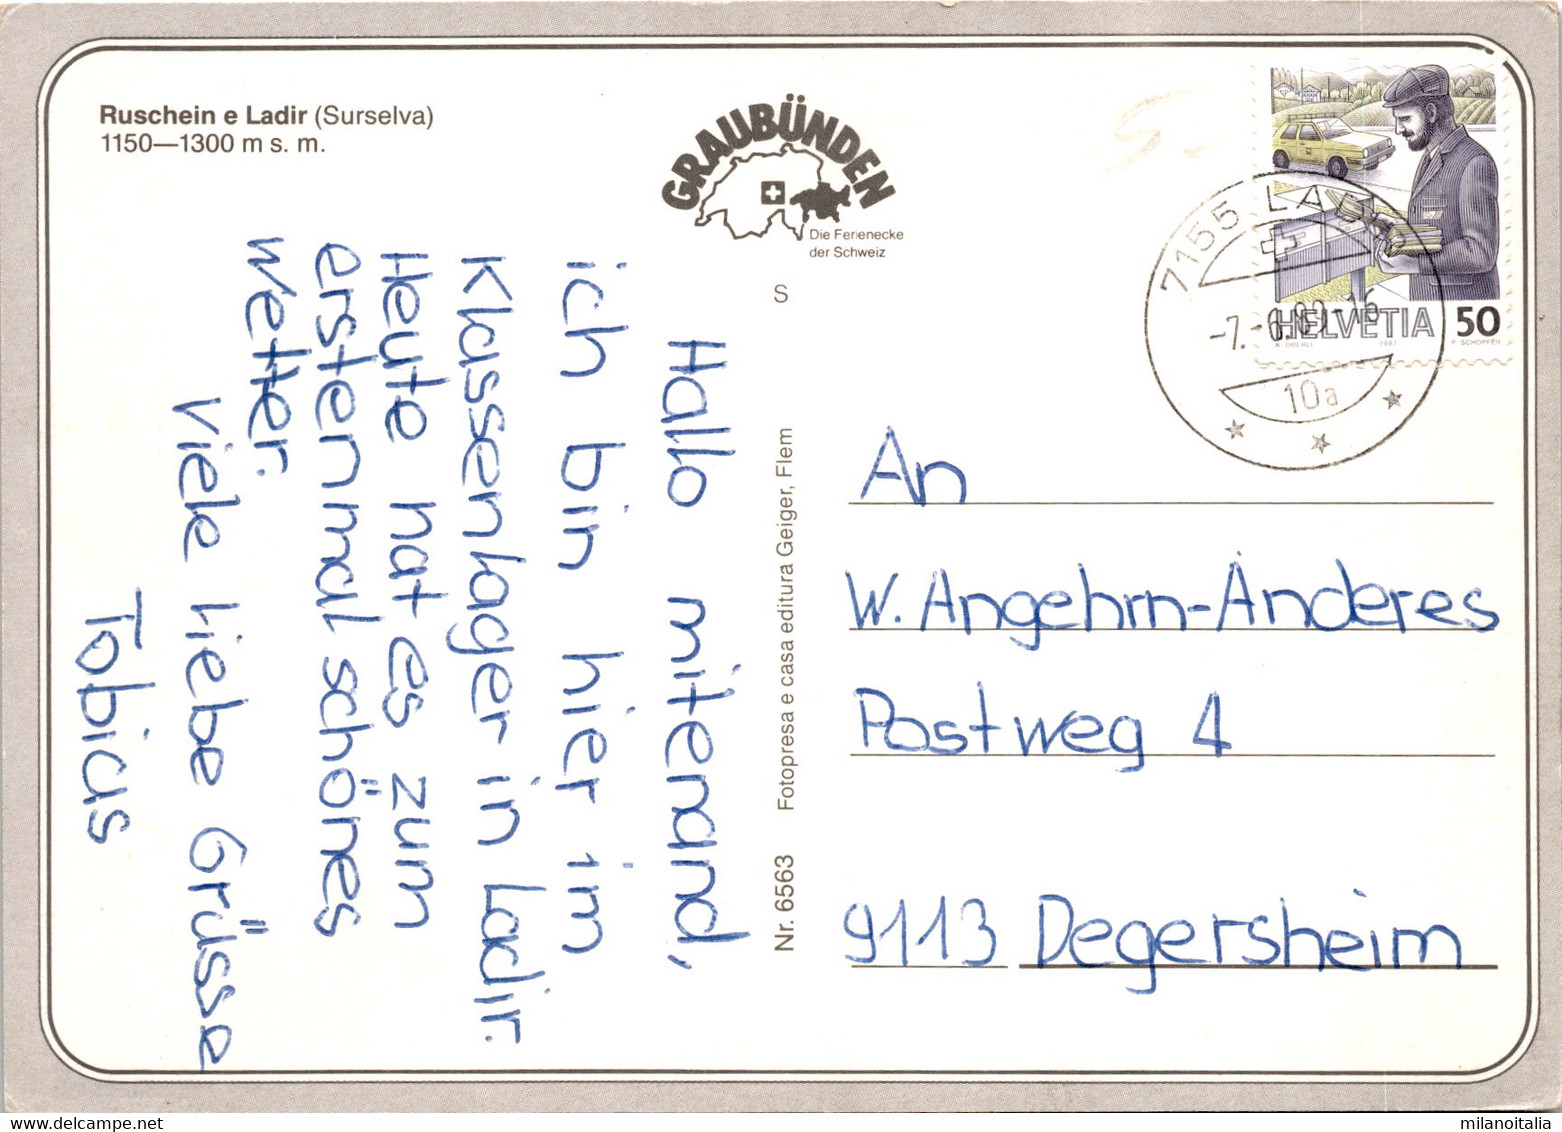 Ruschein e Ladir (Surselva)
1150—1300 m s. m.
GRAUBÜNDEN
Die Ferienecke
der Schweiz
S
Hallo mitenand,
ich bin hier im
Klassenlager in Ladir.
Heute hat es zum
erstenmal schönes
wetter.
Viele liebe Grüsse
Tobias
Nr. 6563 Fotopresa e casa editura Geiger, Flem
HELVETIA 50
K. OBERLI 1987 P. SCHOPFER
7155 LADIR
-7.-6.89-16
10a
An
W. Angehrn-Anderes
Postweg 4
9113 Degersheim
milanoitalia